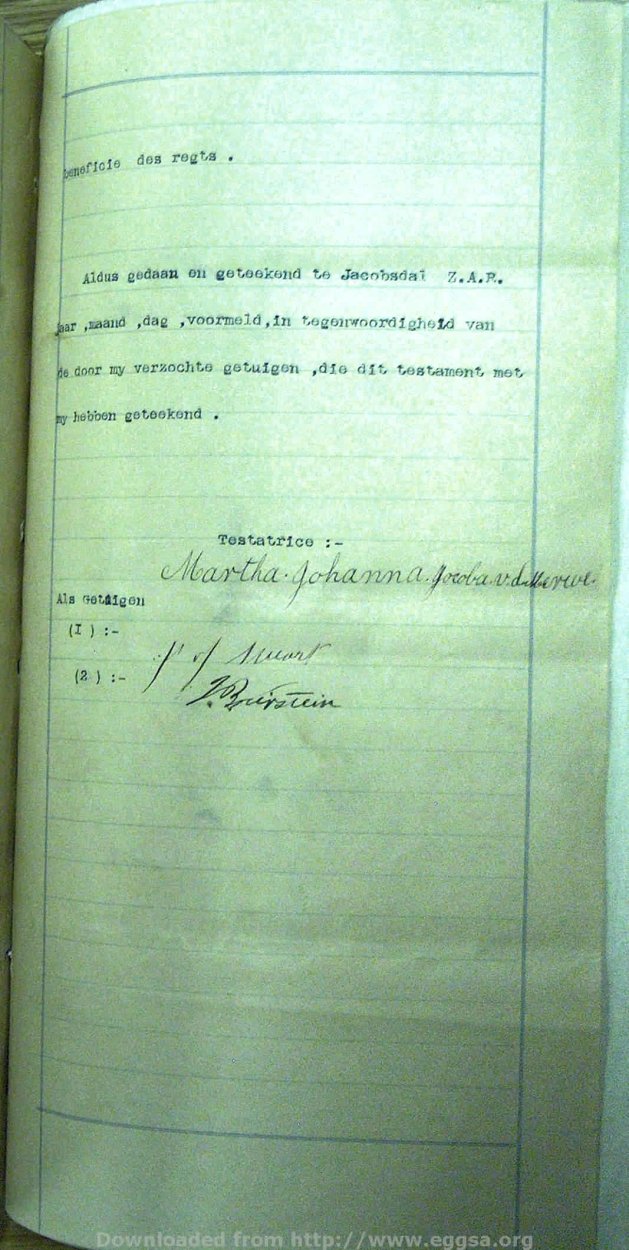 beneficie des regts .
Aldus gedaan en geteekend te Jacobsdal Z.A.R.
jaar ,maand ,dag ,voormeld,in tegenwoordigheid van
de door my verzochte getuigen ,die dit testament met
my hebben geteekend .
Testatrice :-
Martha. Johanna. Jacoba v.d. Merwe.
Als Getuigen
(I ) :-
(2 ) :-
Downloaded from http://www.eggsa.org